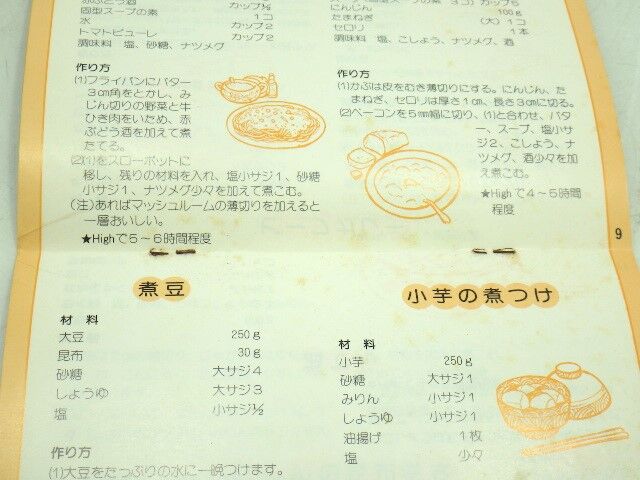 赤ぶどう酒 カップ½
固型スープの素 1コ
水 カップ2
トマトピューレ カップ2
調味料 塩、砂糖、ナツメグ
作り方
(1)フライパンにバター
3cm角をとかし、み
じん切りの野菜と牛
ひき肉をいため、赤
ぶどう酒を加えて煮
たてる。
(2)(1)をスローポットに
移し、残りの材料を入れ、塩小サジ1、砂糖
小サジ1、ナツメグ少々を加えて煮こむ。
(注)あればマッシュルームの薄切りを加えると
一層おいしい。
★Highで5~6時間程度
3コ)カップ5
にんじん 100g
たまねぎ (大)1コ
セロリ 1本
調味料 塩、こしょう、ナツメグ、酒
作り方
(1)かぶは皮をむき薄切りにする。にんじん、た
まねぎ、セロリは厚さ1cm、長さ3cmに切る。
(2)ベーコンを5mm幅に切り、(1)と合わせ、バタ
ー、スープ、塩小サ
ジ2、こしょう、ナ
ツメグ、酒少々を加
えて煮こむ。
★Highで4~5時間
程度
9
煮豆
材料
大豆 250g
昆布 30g
砂糖 大サジ4
しょうゆ 大サジ3
塩 小サジ½
作り方
(1)大豆をたっぷりの水に一晩つけます。
小芋の煮つけ
材料
小芋 250g
砂糖 大サジ1
みりん 小サジ1
しょうゆ 小サジ1
油揚げ 1枚
塩 少々